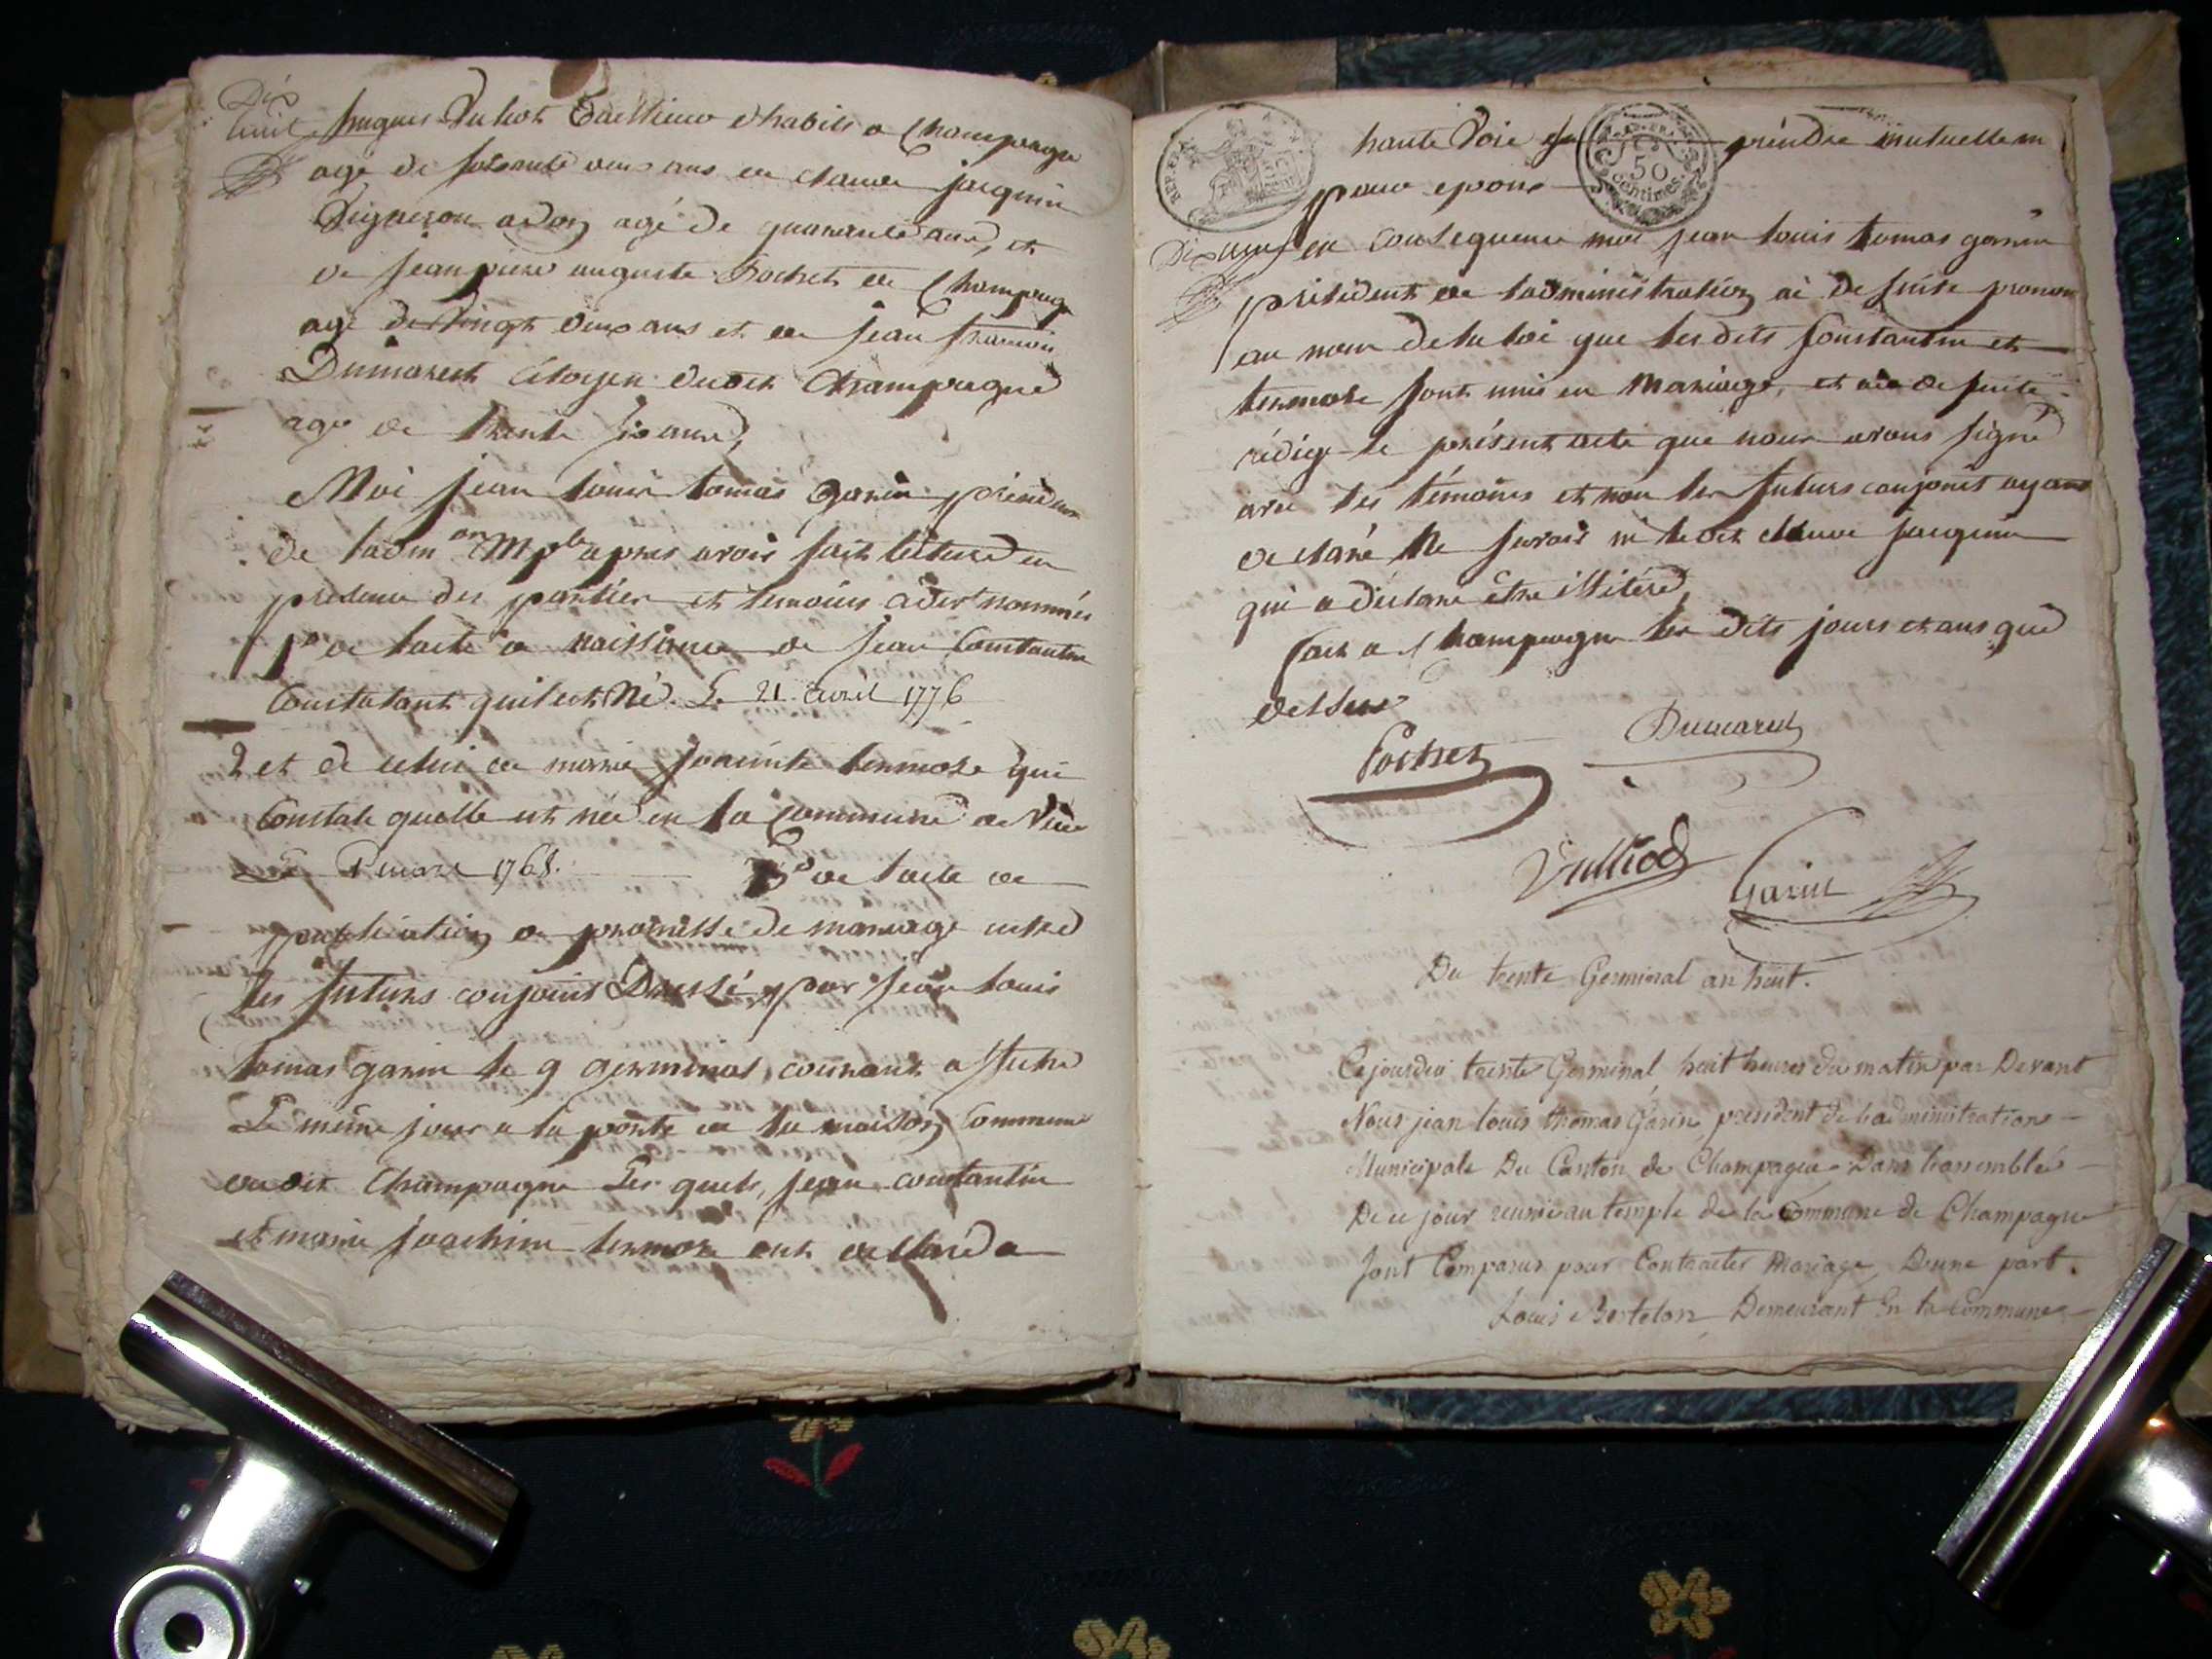 Dix
huit
hugues Tailleur d'habits a Champagne
agé de soixante deux ans de claude jacquin
Vigneron a don agé de quarante ans, et
de jean pierre auguste Pochet de Champag
agé de Vingt deux ans et de jean francois
Dumarest Citoyen dudit Champagne
agé de trente six ans,
Moi jean louis tomas garin président
de ladm.on M.ple apres avoir fait lecture en
présence des parties et temoins cidest nommés
1.o de lacte de naissance de jean Constantin
Constatant quil est Né Le 21 avril 1776
2 et de celui de marie termoze qui
Constate quelle est née en la Commune de
Le 1 mars 1768. 3.o de lacte de
publication de promesse de mariage entre
les futurs conjoints Dressé par jean louis
tomas garin le 9 germinal courant affiché
Le même jour a la porte de la maison Commune
dudit Champagne Les quels, jean constantin
et marie termoze ont declaré a
REP. FRA.
50
centimes
haute Voie se prendre mutuellem
pour epoux
Dix neuf
en consequence moi jean louis tomas garin
président de ladministration ai de suite pronon
au nom de la loi que les dits Constantin et
termoze sont unis en Mariage, et ai de suite
rédigé le présent acte que nous avons signé
avec les témoins et non les futurs conjoints ayant
declaré Ne savoir ni ledit claude jacquin
qui a déclaré être illitéré,
fait a Champagne les dits jours et ans que
dessus
Pochet Dumarest
Vulliod Garin
Du trente Germinal an huit.
Cejourdui trente Germinal huit heures du matin par Devant
Nous jean louis thomas Garin président de ladministration
Municipale Du Canton de Champagne Dans lassemblée
De ce jour reunie au temple de la Commune de Champagne
Sont Comparus pour Contracter Mariage, Dune part.
Louis Bertelon Demeurant En la Commune